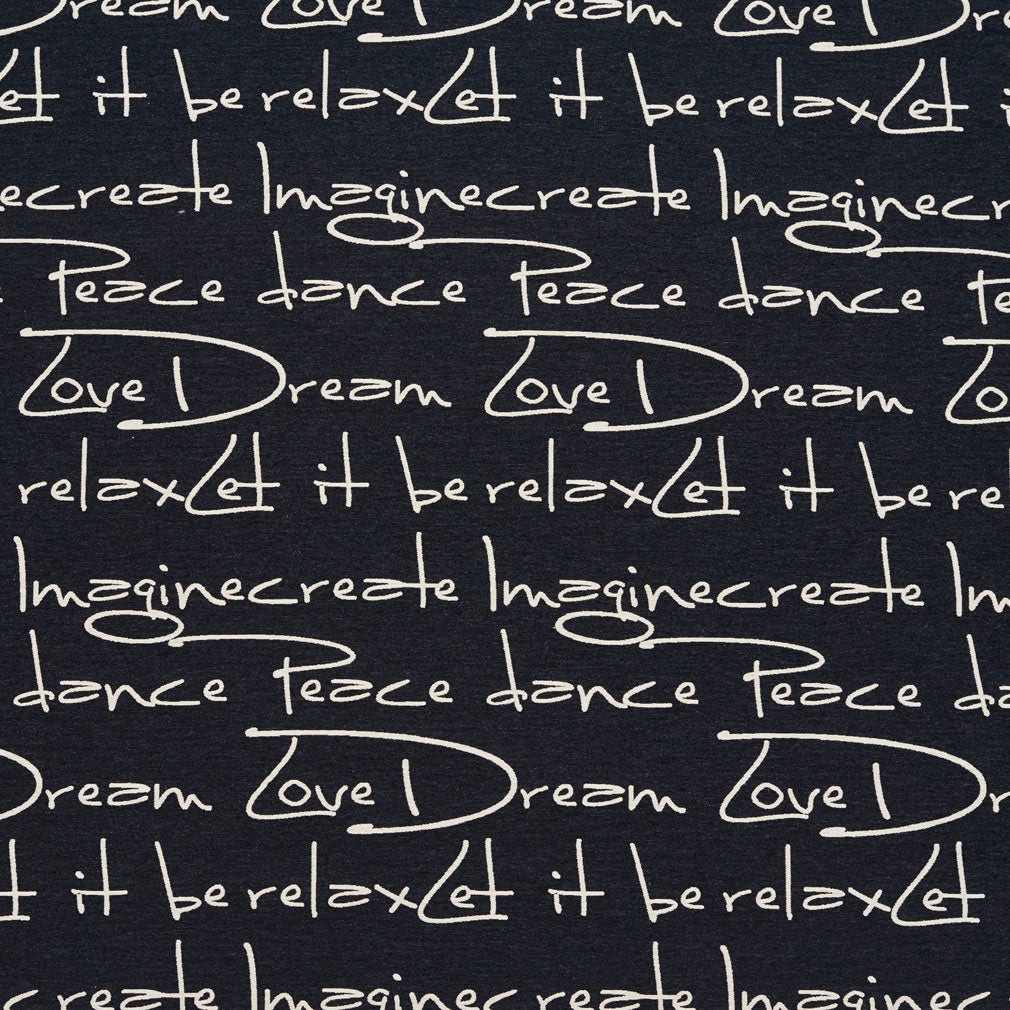 Love Dream Love D
Let it be relax Let it be relax Let
create Imagine create Imagine
Peace dance Peace dance
Love Dream Love Dream
relax Let it be relax Let it be re
Imagine create Imagine create Im
dance Peace dance Peace da
Dream Love Dream Love D
it be relax Let it be relax Let
create Imagine create Imagine c